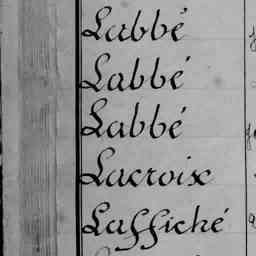 Labbé
Labbé
Labbé
Lacroix
Laffiché